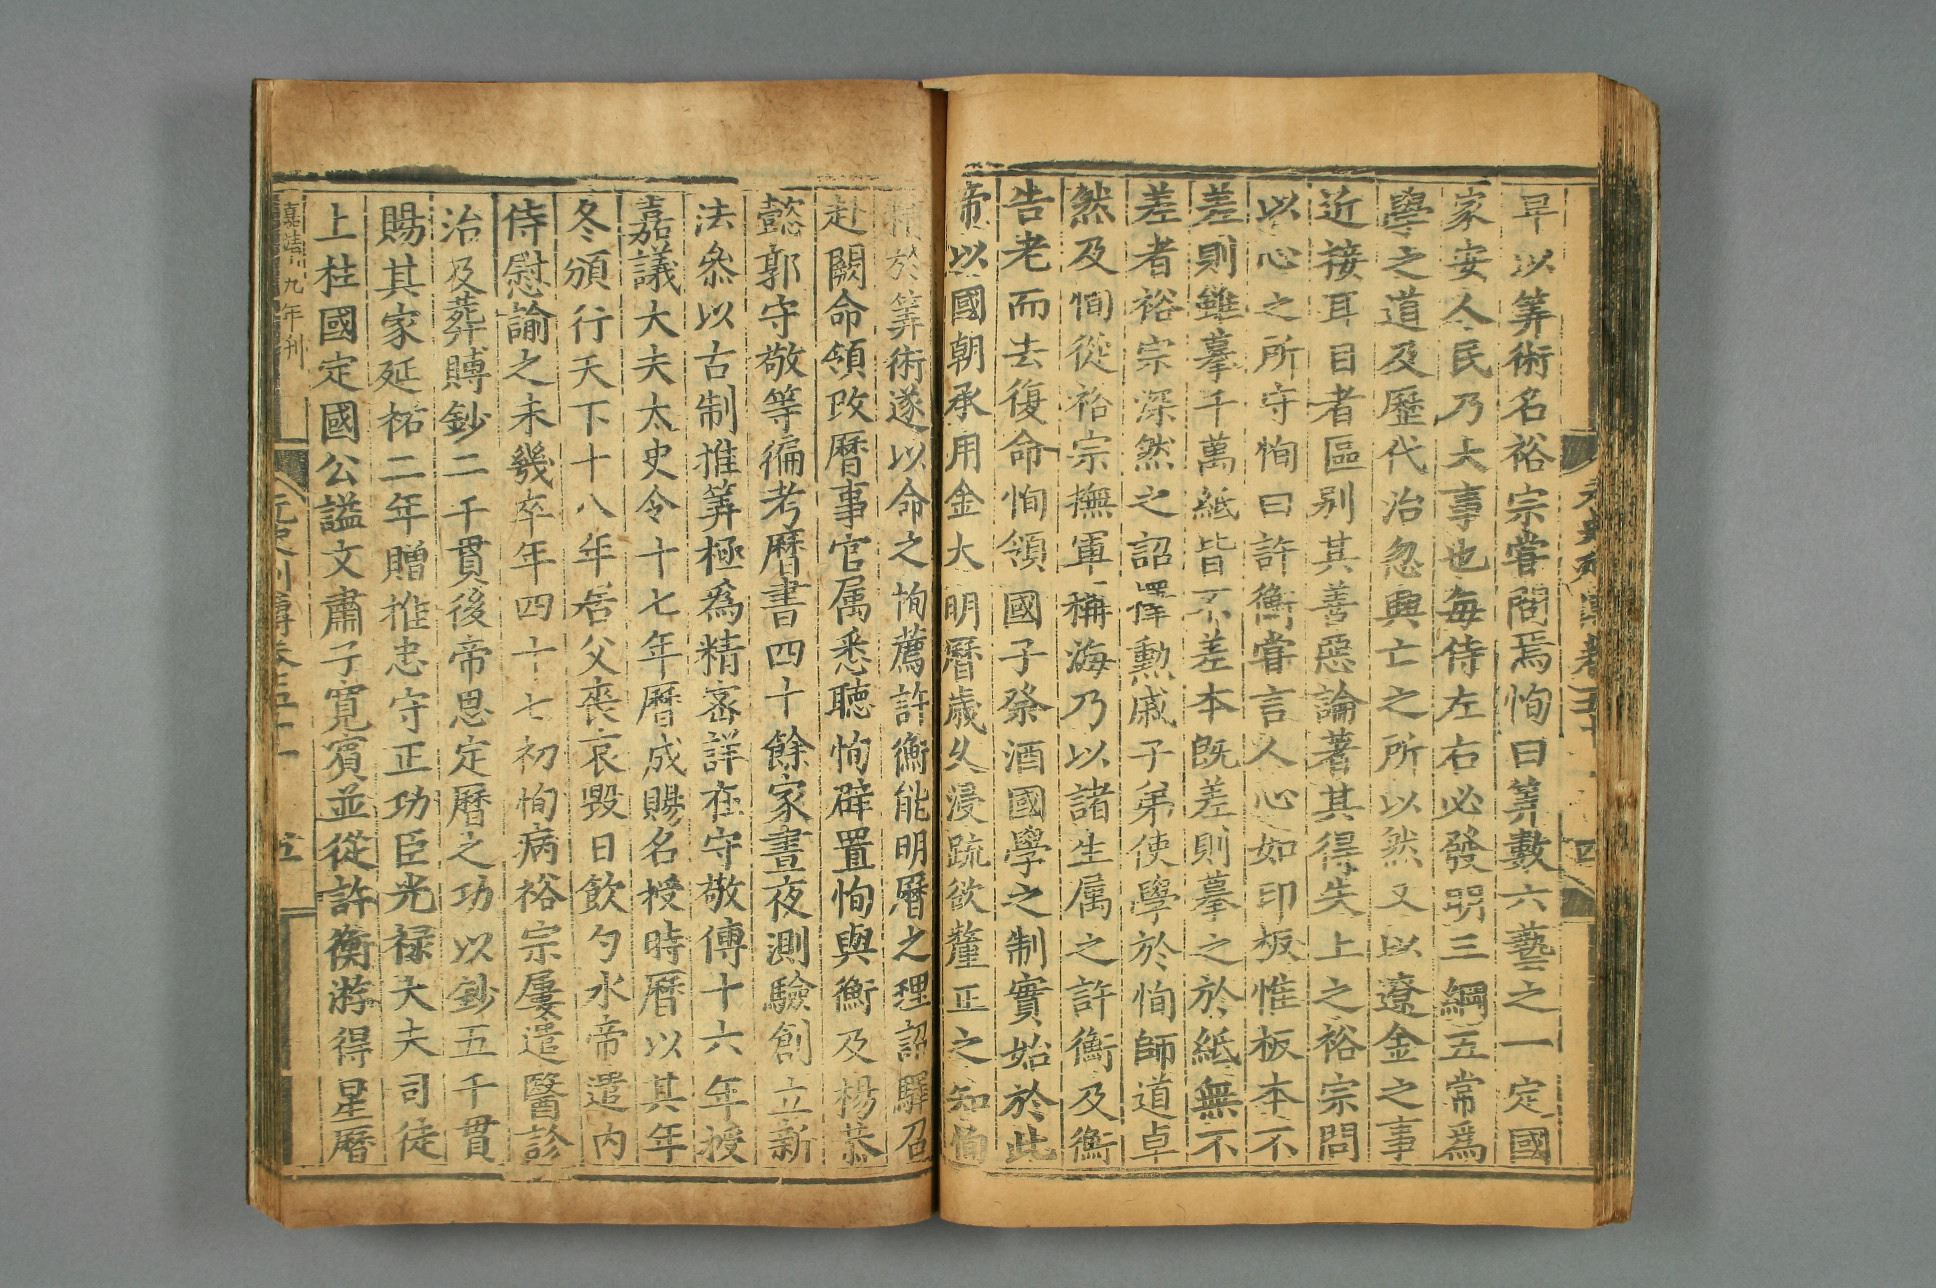 早以筭術名裕宗甞問焉恂曰筭數六藝之一定國
家安人民乃大事也每侍左右必發明三綱五常爲
學之道及歷代治忽興亡之所以然又以遼金之事
近接耳目者區別其善惡論著其得失上之裕宗問
以心之所守恂曰許衡甞言人心如印板惟板本不
差則雖摹千萬紙皆不差本既差則摹之於紙無不
差者裕宗深然之詔擇勲戚子弟使學於恂師道卓
然及恂從裕宗撫軍稱海乃以諸生属之許衡及衡
告老而去復命恂領國子祭酒國學之制實始於此
帝以國朝承用金大明曆歲久浸疏欲釐正之知恂
精於筭術遂以命之恂薦許衡能明曆之理詔驛召
赴闕命領改曆事官属悉聽恂辟置恂與衡及楊恭
懿郭守敬等徧考曆書四十餘家晝夜測驗創立新
法叅以古制推筭極爲精宻詳在守敬傳十六年授
嘉議大夫太史令十七年曆成賜名授時曆以其年
冬頒行天下十八年居父喪哀毀日飲勺水帝遣内
侍慰諭之未幾卒年四十七初恂病裕宗屢遣醫診
治及葬賻鈔二千貫後帝思定曆之功以鈔五千貫
賜其家延祐二年贈推忠守正功臣光禄大夫司徒
上柱國定國公謚文肅子寛賓並從許衡游得星曆
嘉靖九年刋
元史列傳卷五十一
五